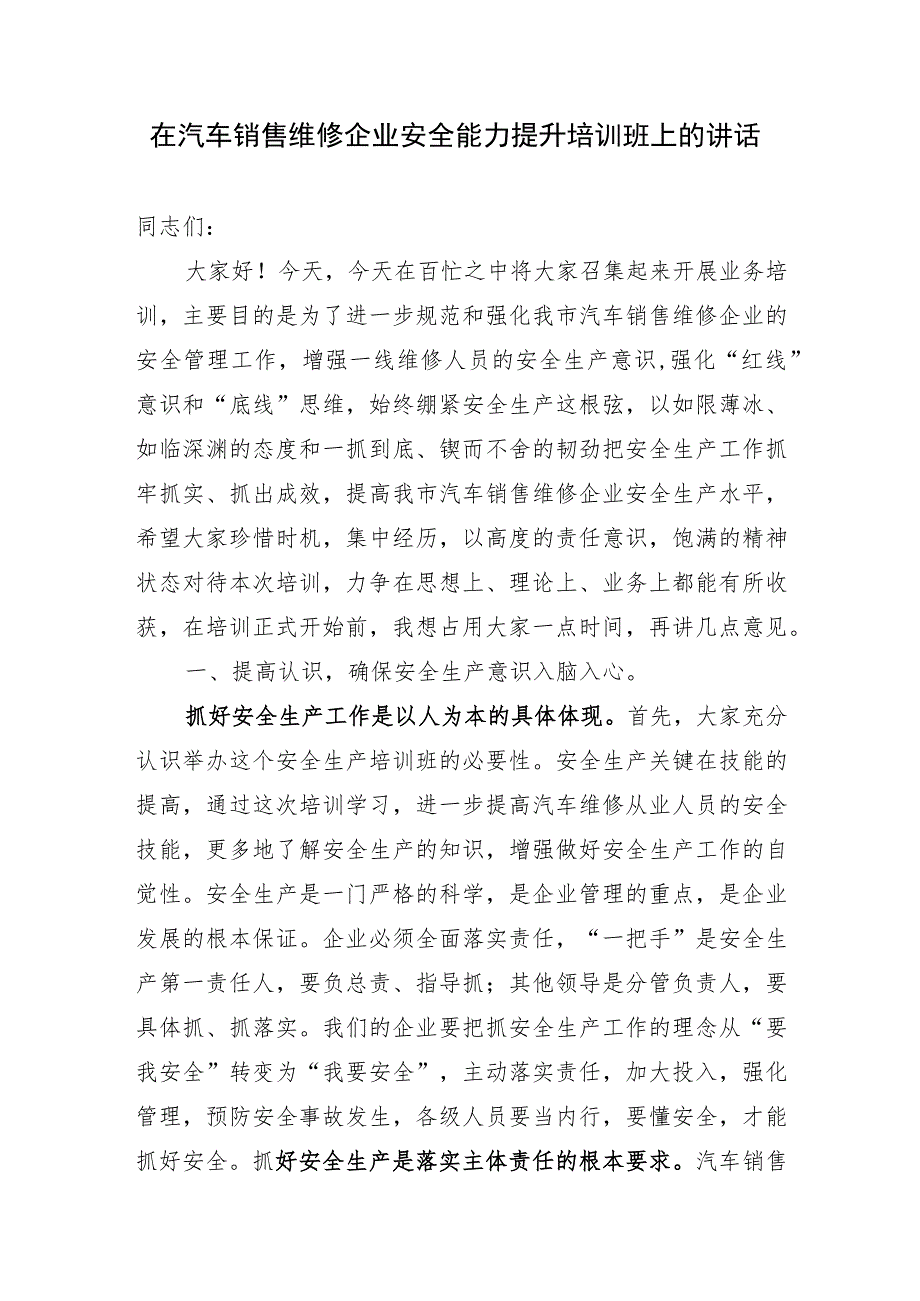 在汽车销售维修企业安全能力提升培训班上的讲话
同志们：
大家好！今天，今天在百忙之中将大家召集起来开展业务培
训，主要目的是为了进一步规范和强化我市汽车销售维修企业的
安全管理工作，增强一线维修人员的安全生产意识,强化“红线”
意识和“底线”思维，始终绷紧安全生产这根弦，以如限薄冰、
如临深渊的态度和一抓到底、锲而不舍的韧劲把安全生产工作抓
牢抓实、抓出成效，提高我市汽车销售维修企业安全生产水平，
希望大家珍惜时机，集中经历，以高度的责任意识，饱满的精神
状态对待本次培训，力争在思想上、理论上、业务上都能有所收
获，在培训正式开始前，我想占用大家一点时间，再讲几点意见。
一、提高认识，确保安全生产意识入脑入心。
抓好安全生产工作是以人为本的具体体现。首先，大家充分
认识举办这个安全生产培训班的必要性。安全生产关键在技能的
提高，通过这次培训学习，进一步提高汽车维修从业人员的安全
技能，更多地了解安全生产的知识，增强做好安全生产工作的自
觉性。安全生产是一门严格的科学，是企业管理的重点，是企业
发展的根本保证。企业必须全面落实责任，“一把手”是安全生
产第一责任人，要负总责、指导抓；其他领导是分管负责人，要
具体抓、抓落实。我们的企业要把抓安全生产工作的理念从“要
我安全”转变为“我要安全”，主动落实责任，加大投入，强化
管理，预防安全事故发生，各级人员要当内行，要懂安全，才能
抓好安全。抓好安全生产是落实主体责任的根本要求。汽车销售